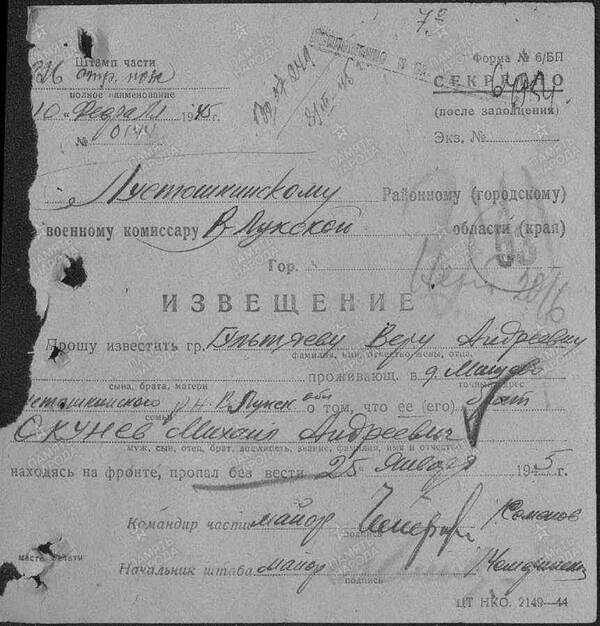 7°
Штамп части
Форма № 6/БП
стр. полк
СЕКРЕТНО
полное наименование
(после заполнения)
10 „Февраля 1945г.
Экз. №
№ 0144
Пустошкинскому Районному (городскому)
военному комиссару В-Лукской области (края)
Гор.
53
ИЗВЕЩЕНИЕ
Прошу известить гр. Гультяеву Веру Андреевну
фамилия, имя, отчество жены, отца,
проживающ. в д. Мащево
сына, брата, матери
точный адрес
р-н В. Лукск. обл о том, что ее (его) брат
семьи
Скунев Михаил Андреевич
муж, сын, отец, брат, должность, звание, фамилия, имя и отчество
находясь на фронте, пропал без вести 25 Января 1945г.
Командир части майор
подпись
место печати
Начальник штаба майор
подпись
ЦТ НКО. 2149—44